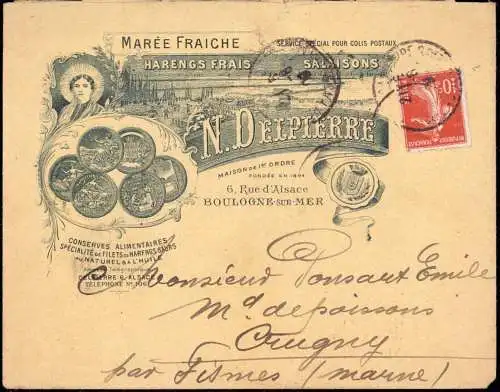 MARÉE FRAICHE
SERVICE SPÉCIAL POUR COLIS POSTAUX
HARENGS FRAIS SALAISONS
N. DELPIERRE
MAISON DE 1ER ORDRE
FONDÉE EN
6, Rue d'Alsace
BOULOGNE-SUR-MER
CONSERVES ALIMENTAIRES
SPÉCIALITÉ DE FILETS DE HARENGS SAURS
AU NATUREL & À L'HUILE
DELPIERRE 6, ALSACE
TÉLÉPHONE No 106
10c
REPUBLIQUE FRANÇAISE
Monsieur Ponsart Emile
Md de poissons
Crugny
par Fismes (Marne)